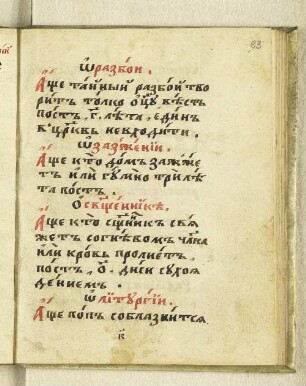 83
Ѡ разбои.
Аще таиный разбой тво
ритъ толко оц҃у вѣсть
постъ. г҃. лѣта, единъ
въ цр҃ковь невходити.
Ѡ зазжении.
Аще кто домъ зажже
тъ или гумно три лѣ
та постъ.
О свщ҃енникѣ.
Аще кто сщ҃нникъ свѧ
жетъ согнѣвомъ чл҃ка
или кровь пролиетъ,
постъ. о҃. дн҃еи сухоѧ
дениемъ.
Ѡ литургии.
Аще попъ соблазнитсѧ